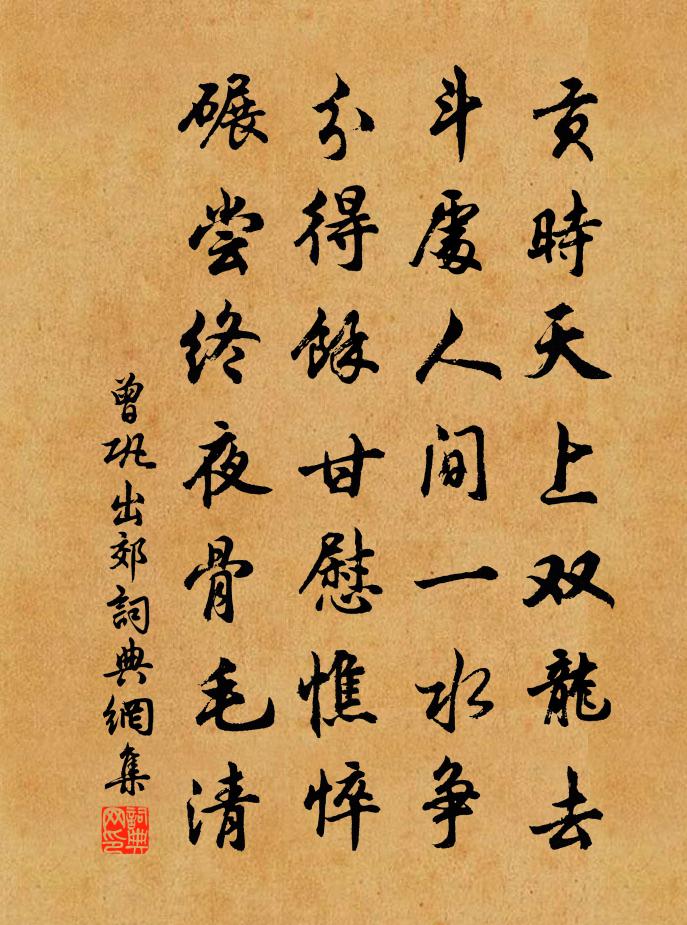 貢時天上双龍去
斗處人間一水争
分得餘甘慰憔悴
碾尝终夜骨毛清
曾巩出郊詞典網集
詞典
网印